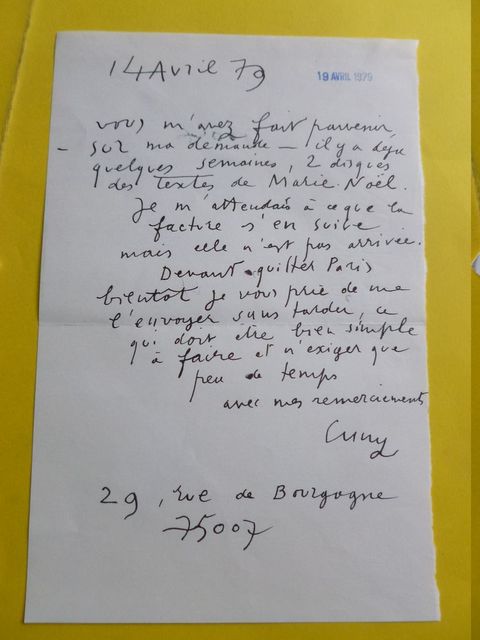 14 Avril 79
19 AVRIL 1979
vous m'avez fait parvenir,
- sur ma demande - il y a déjà
quelques semaines, 2 disques
des textes de Marie-Noël.
Je m'attendais à ce que la
facture s'en suive
mais elle n'est pas arrivée.
Devant quitter Paris
bientôt je vous prie de me
l'envoyer sans tarder, ce
qui doit être bien simple
à faire et n'exiger que
peu de temps
avec mes remerciements
Cuny
29, rue de Bourgogne
75007